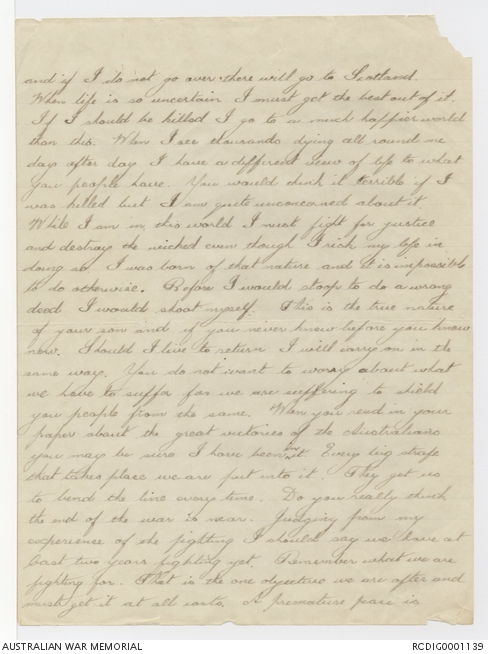 and if I do not go over there will go to Scotland.
When life is so uncertain I must get the best out of it.
If I should be killed I go to a much happier world
than this. When I see thousands dying all round me
day after day I have a different view of life to what
you people have. You would think it terrible if I
was killed but I am quite unconcerned about it
While I am in this world I must fight for justice
and destroy the wicked even though I risk my life in
doing so. I was born of that nature and it is impossible
to do otherwise. Before I would stoop to do a wrong
deed I would shoot myself. This is the true nature
of your son and if you never knew before you know
now. Should I live to return I will carry on in the
same way. You do not want to worry about what
we have to suffer for we are suffering to shield
you people from the same. When you read in your
paper about the great victories of the Australians
you may be sure I have been in it Every big strafe
that takes place we are put into it. They get us
to bend the line every time. Do you really think
the end of the war is near. Judging from my
experience of the fighting I should say we have at
least two years fighting yet. Remember what we are
fighting for. That is the one objective we are after and
must get it at all costs. A premature peace is
AUSTRALIAN WAR MEMORIAL
RCDIG0001139